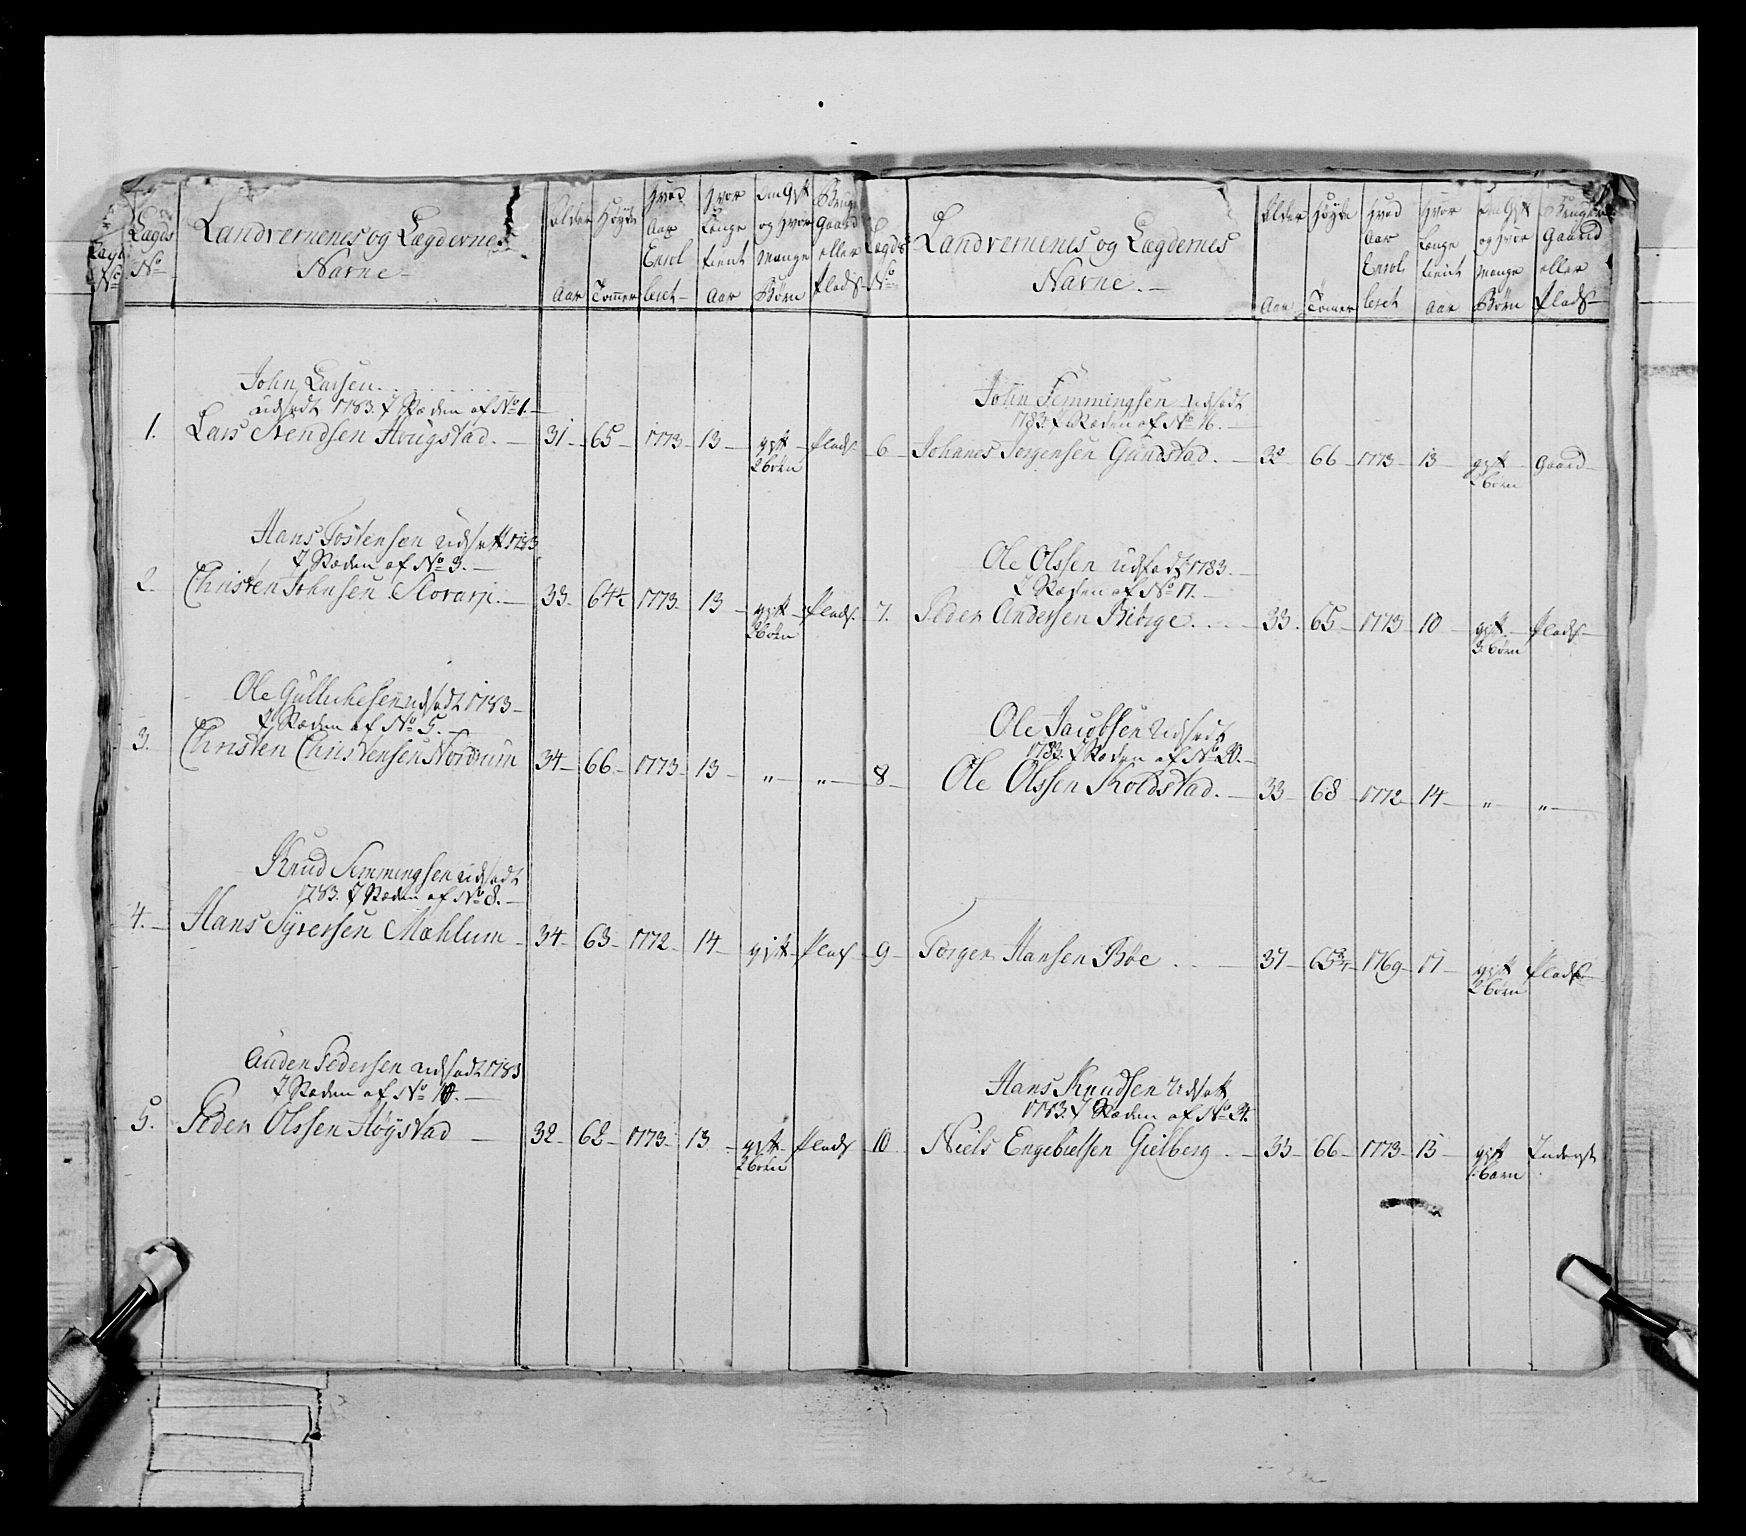 Lægds No
Landvernenes og Lægdernes Navne
Alder Aar
Høyde Tommer
Hvad Aar Enrolleret
Hvor Længe tient Aar
Om Gift og Hvor Mange Børn
Bruger Gaard eller Plads
John Larsen
udsadt 1783. I Stæden af No 1.
1. Lars Svendsen Hougstad. 31 65 1773 13 gift 2 børn Plads
Hans Tostensen udsatt 1783
I Stæden af No 3.
2. Christen Johnsen 33 64½ 1773 13 gift 2 børn Plads
Ole Gullichesen udsadt 1783
I Stæden af No 5.
3. Christen Christensen Nordrum 34 66 1773 13 " "
Knud Semmingsen udsadt
1783. I Stæden af No 8.
4. Hans Syversen Mæhlum 34 63 1772 14 gift Plads
Auden Pedersen udsadt 1783
I Stæden af No
5. Peder Olssen Høystad 32 62 1773 13 gift 2 børn Plads
Lægds No
Landvernenes og Lægdernes Navne.
Alder Aar
Høyde Tommer
Hvad Aar Enrolleret
Hvor Længe tient Aar
Om Gift og Hvor Mange Børn
Bruger Gaard eller Plads
John Semmingsen udsadt
1783. I Stæden af No 16.
6 Johanes Jørgensen Gundstad. 32 66 1773 13 gift 2 børn Gaard
Ole Olssen udsadt 1783.
I Stæden af No 17.
7. Peder Andersen Biørge. 33 65 1773 10 gift 3 børn Plads
Ole Jacobsen udsadt
1783. I Stæden af No 20.
8 Ole Olssen Koldstad. 33 68 1772 14 " "
9 Torger Hansen Bøe 37 65¾ 1769 17 gift 2 børn Plads
Hans Knudsen udsatt
1783. I Stæden af No 24.
10 Niels Engebretsen Gielberg 33 66 1773 13 gift 1 barn Inderst